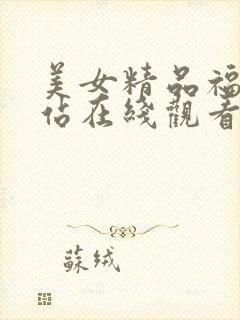 美女精品福
佔在綫觀看
蘇绒